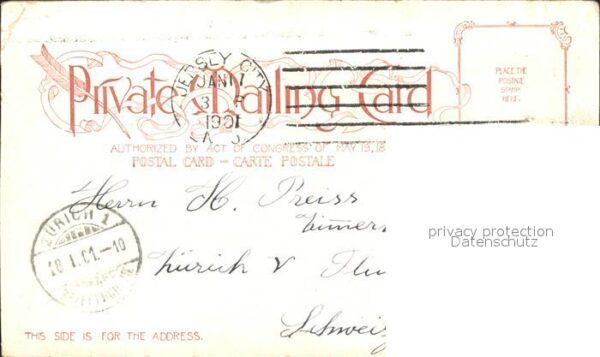 JERSEY CITY
JAN 17
3 - P
1901
N. J.
PLACE THE
POSTAGE
STAMP
HERE.
Private Mailing Card
AUTHORIZED BY ACT OF CONGRESS OF MAY 19, 18
POSTAL CARD — CARTE POSTALE
Herrn H. Preiss
privacy protection
Datenschutz
ZÜRICH 1
28. I. 01. – 10
Zürich V
Schweiz
THIS SIDE IS FOR THE ADDRESS.